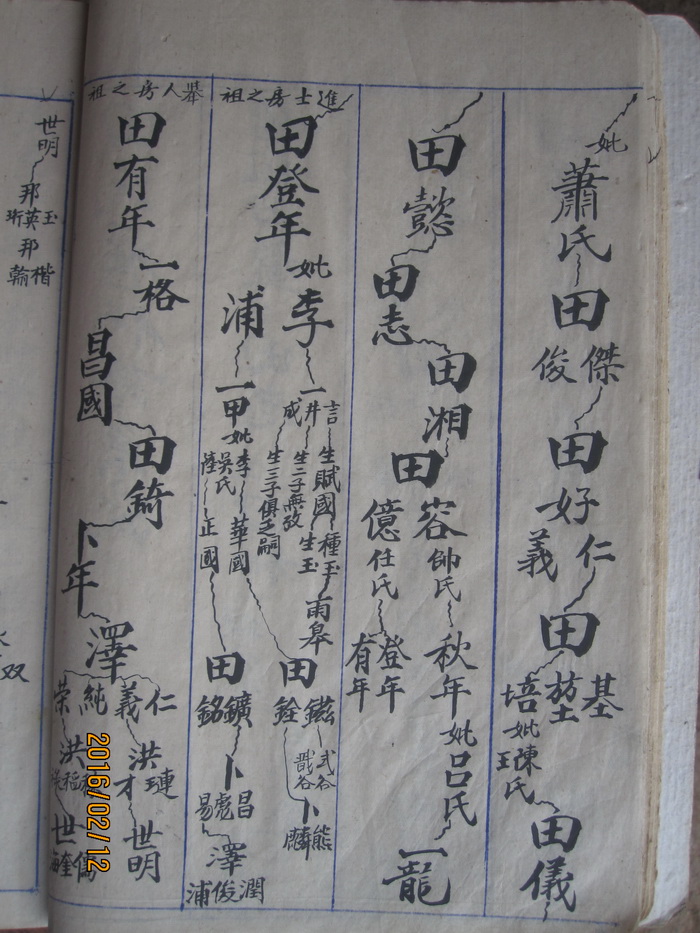 妣
蕭氏
田
傑
俊
田
好
仁
義
田
基
堃
培
妣陳氏
王
田儀
田懿
田志
田湘
田
容
億
帥氏
任氏
秋年
登年
有年
妣呂氏
一龍
進士房之祖
田登年
妣
李
浦
一
言
井
咸
一甲
妣李
吳氏
陸
生賦國
種玉
生玉
生二子無攷
生三子俱乏嗣
華國
正國
雨皋
田
鎡
銓
田
鑛
銘
弍谷
戬谷
卜
熊
麟
卜
昌
彪
易
澤
潤
俊
浦
舉人房之祖
田有年
一格
昌國
田錡
卜年
澤
仁
義
純
荣
洪
璉
才
洪
稻
世明
世
儒
奎
世明
邦
玉
英
珩
邦
楷
翰
双
2016/02/12